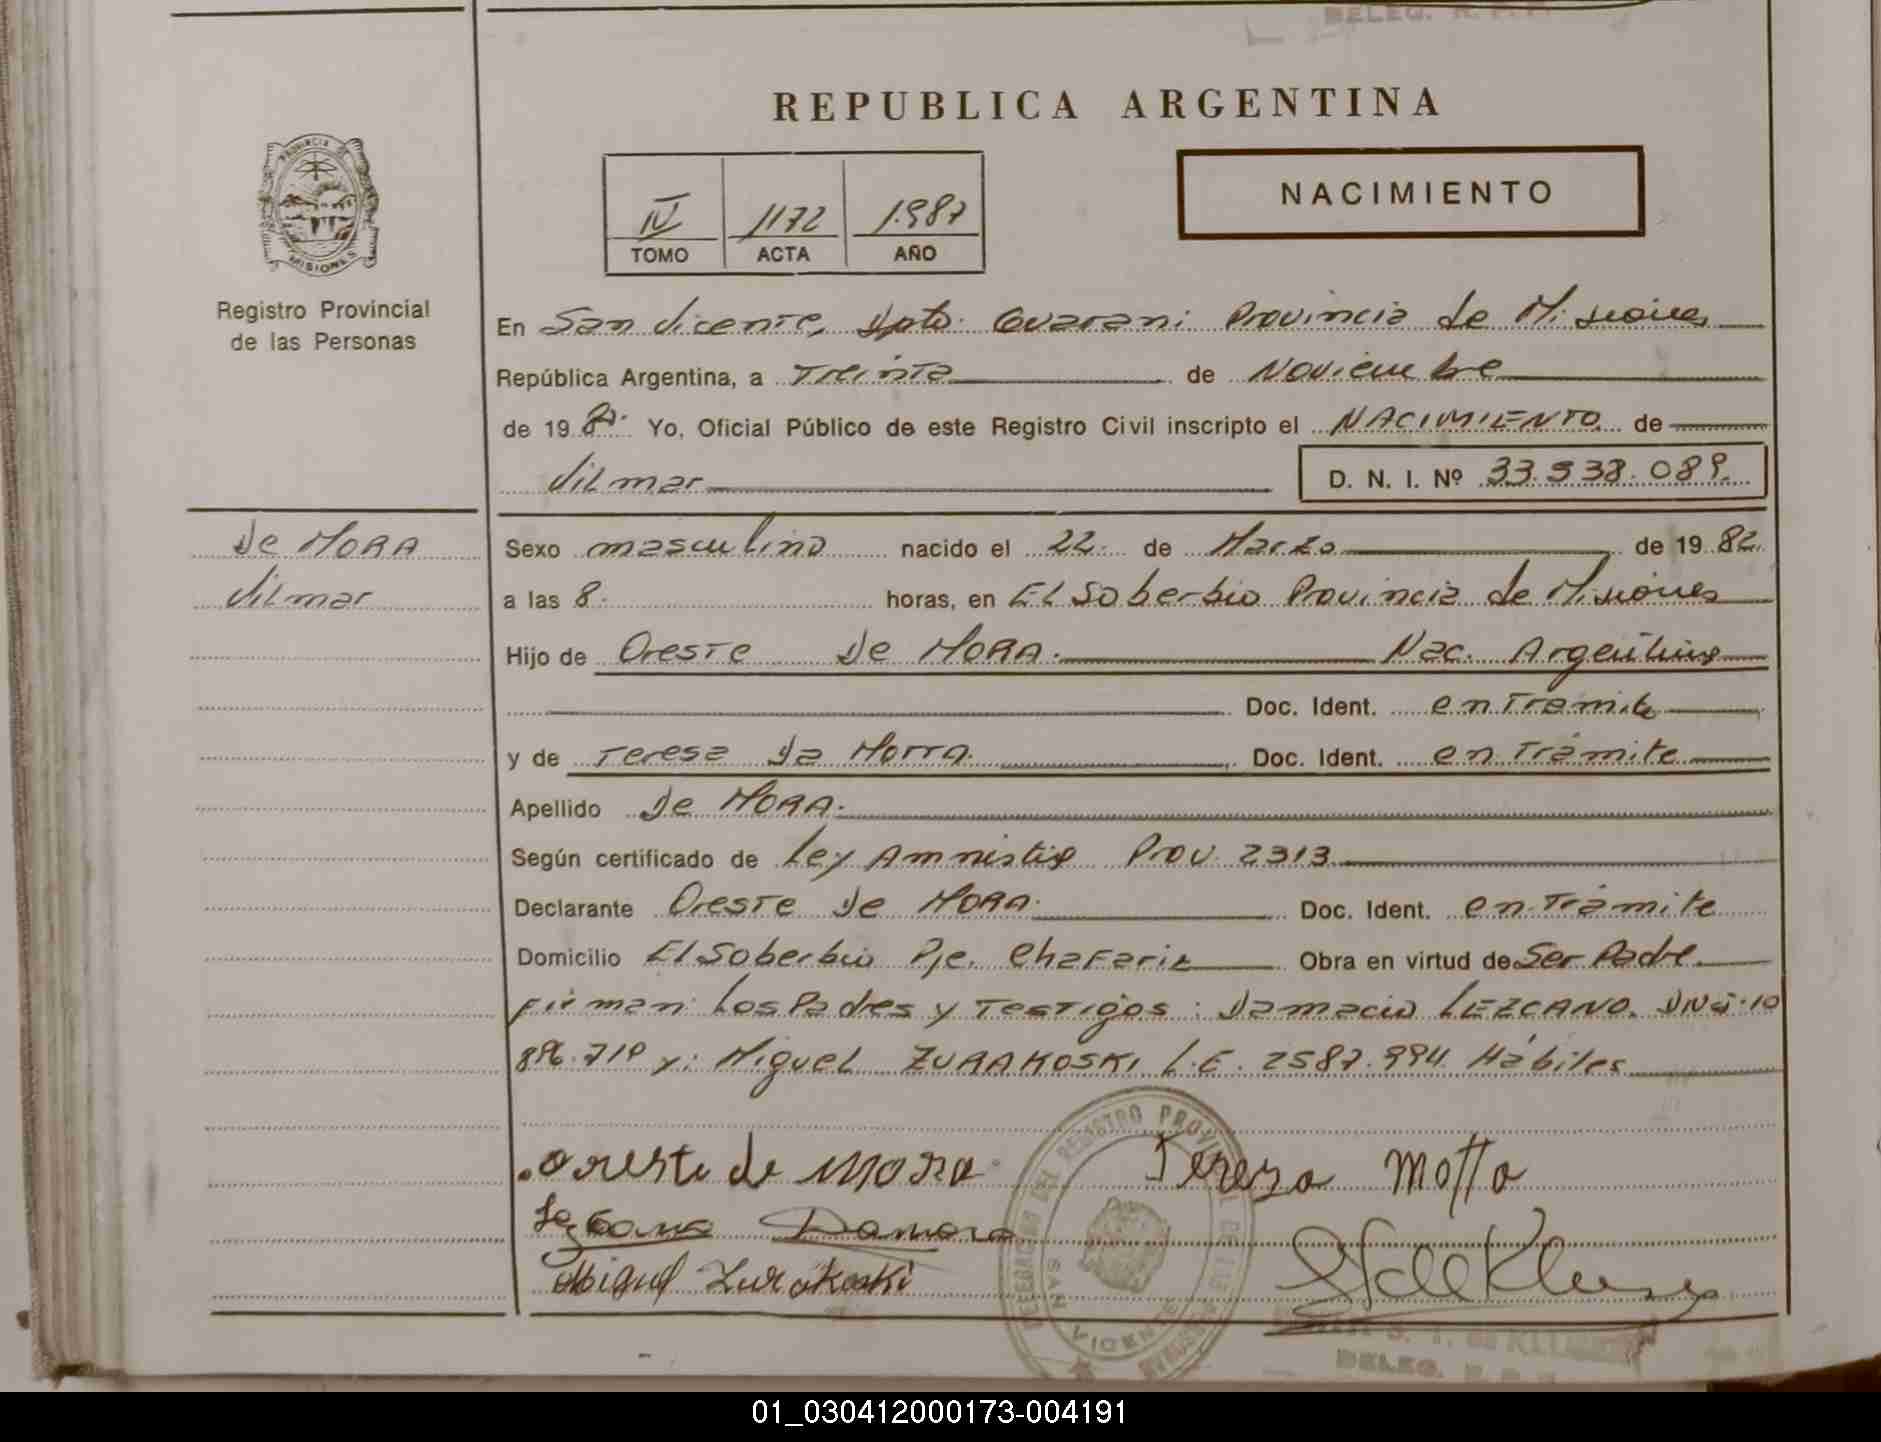 BELEG. R. P. P.
REPUBLICA ARGENTINA
NACIMIENTO
IV 1172 1.987
TOMO ACTA AÑO
PROVINCIA DE MISIONES
Registro Provincial
de las Personas
En San Vicente, Dpto. Guarani Provincia de Misiones
República Argentina, a Treinta de Noviembre
de 1987. Yo, Oficial Público de este Registro Civil inscripto el NACIMIENTO de
Vilmar D. N. I. Nº 33.938.089.
De MORA
Vilmar
Sexo masculino nacido el 22. de Marzo de 1982.
a las 8. horas, en El Soberbio Provincia de Misiones
Hijo de Oreste De MORA. Nac. Argentino
Doc. Ident. en Tramite
y de Teresa Da Motta. Doc. Ident. en Trámite
Apellido De MORA.
Según certificado de Ley Amnistia Prov. 2313
Declarante Oreste De MORA. Doc. Ident. en Trámite
Domicilio El Soberbio Pje. Chafariz Obra en virtud de Ser Padre.
Firman: Los Padres y Testigos: Damacio LEZCANO. DNI: 10
896.710 y: Miguel ZURAKOSKI L.E. 2587.994 Hábiles
oreste de Mora Tereza Motta
Miguel Zurakoski
DELEGACION DEL REGISTRO PROVINCIAL DE LAS PERSONAS
SAN VICENTE
BELEG. R. P. P.
01_030412000173-004191